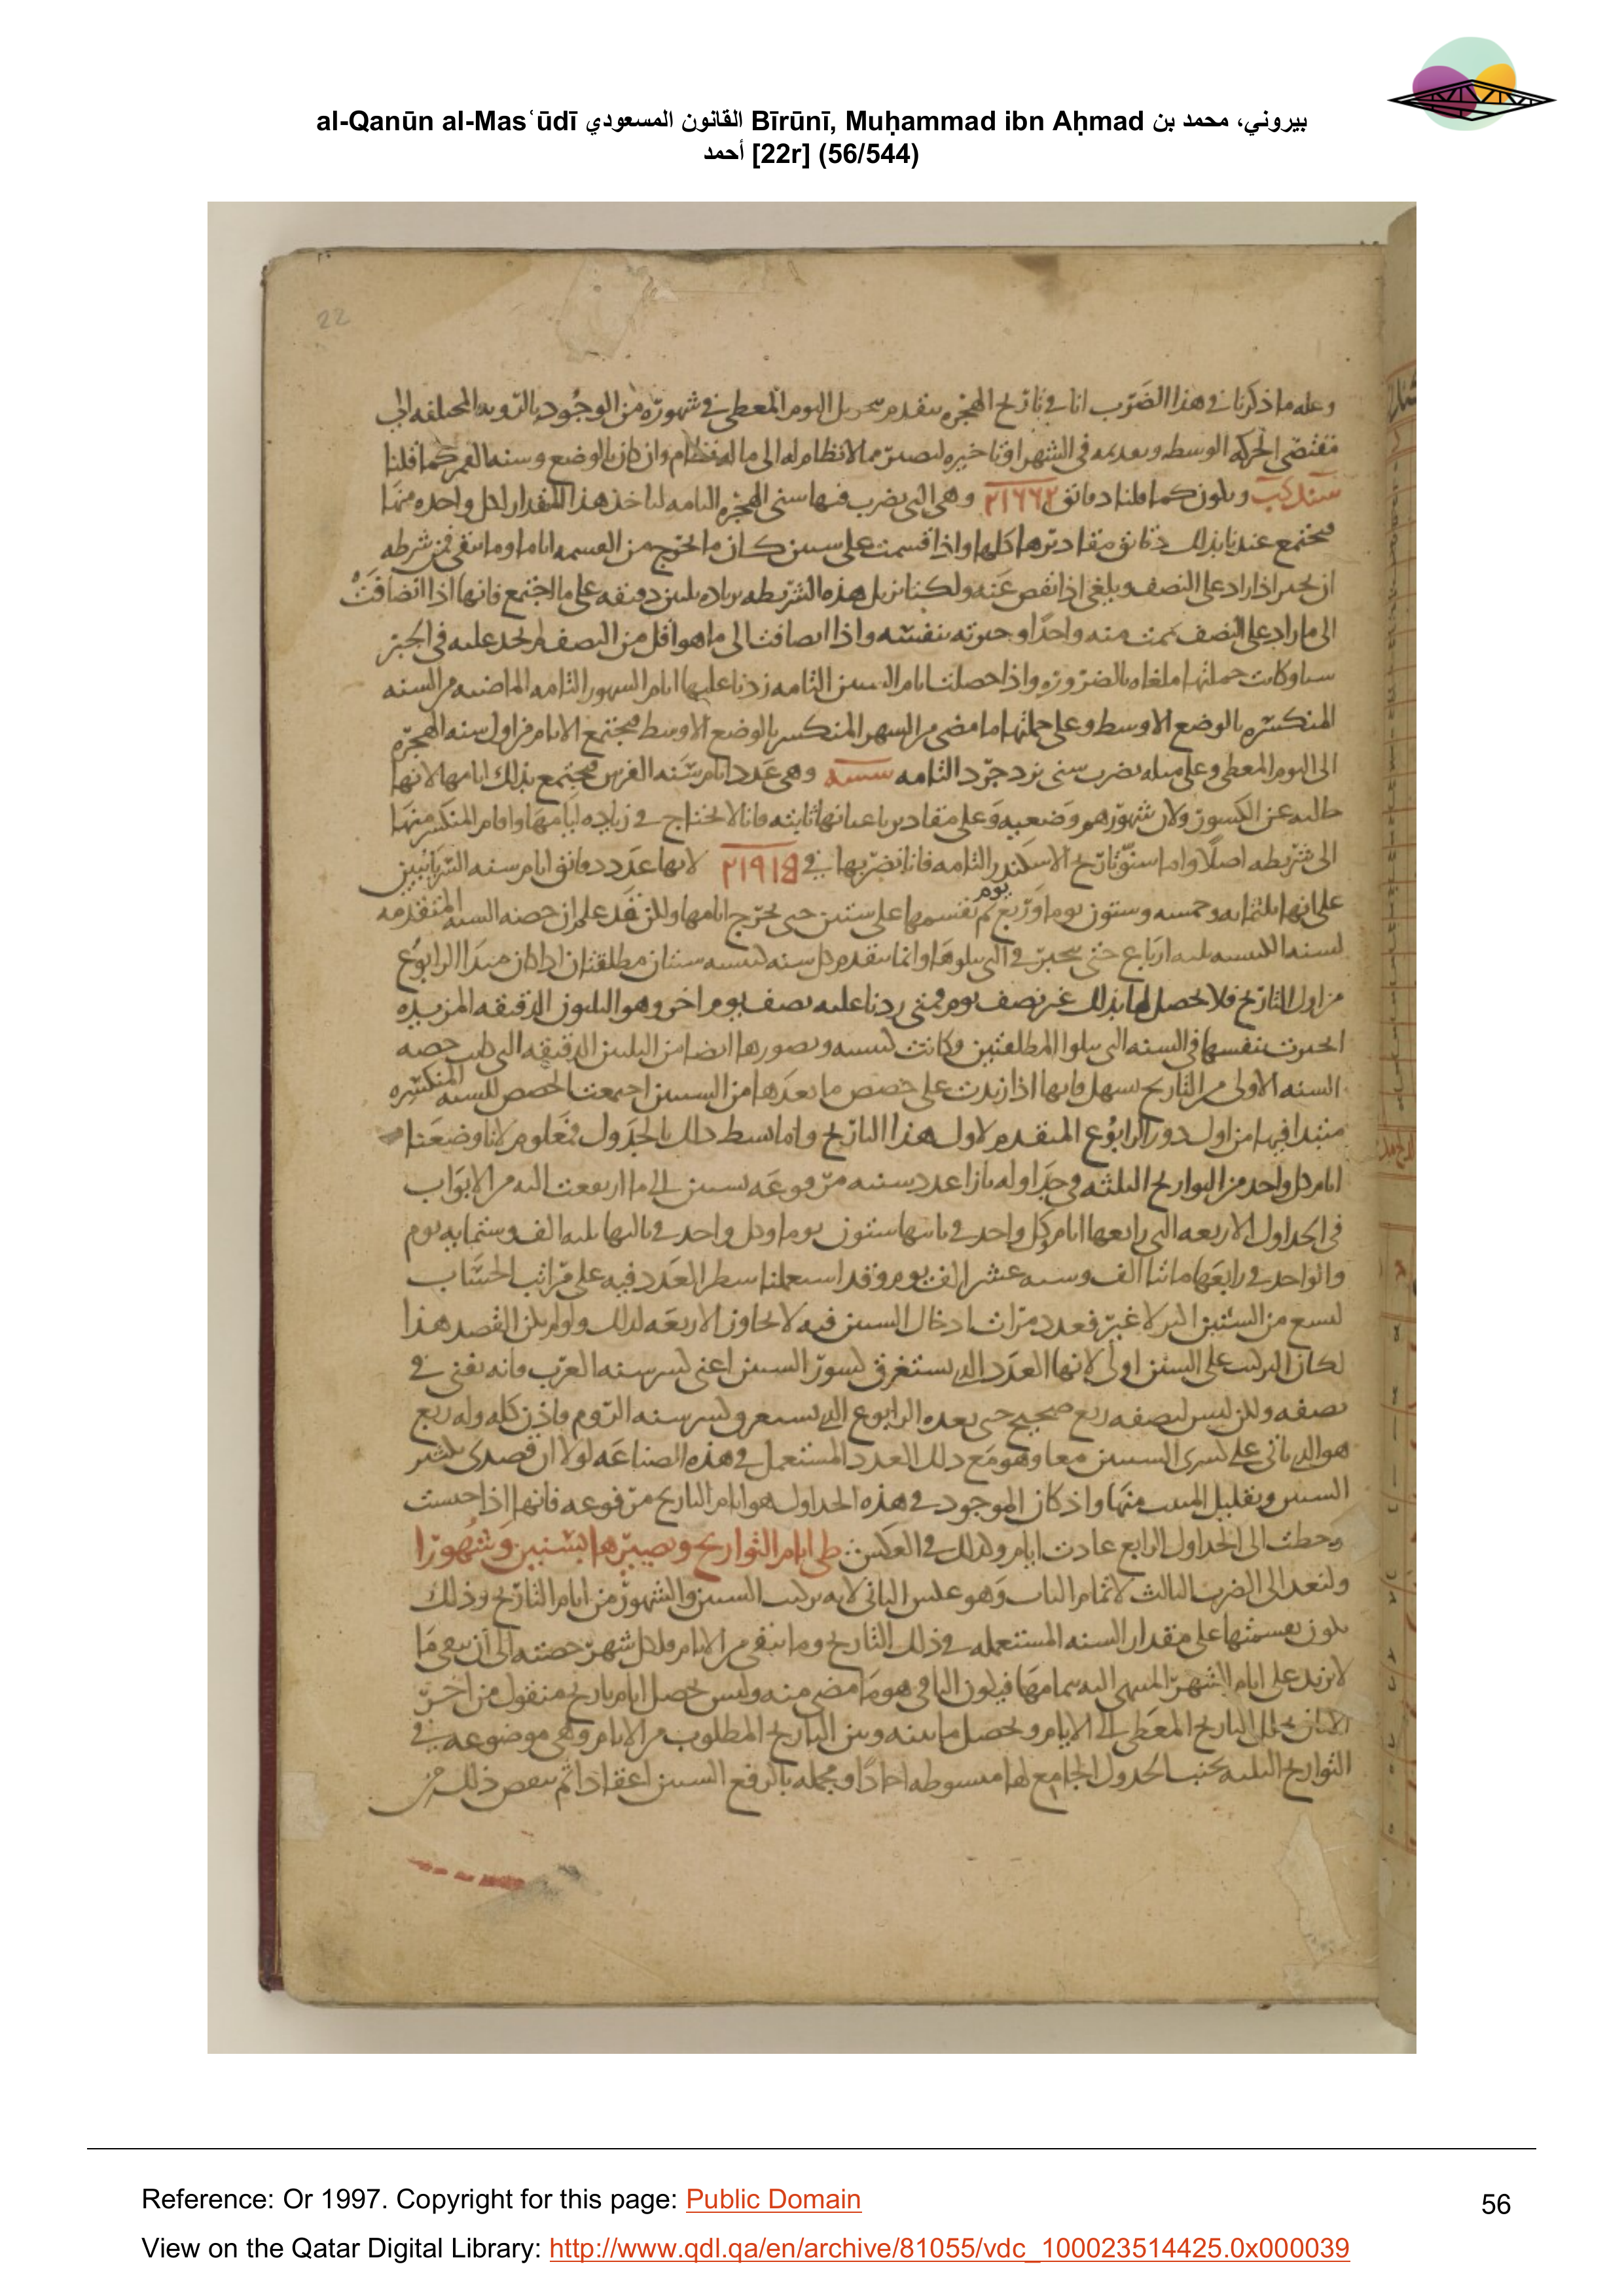 al-Qanūn al-Mas‘ūdī القانون المسعودي Bīrūnī, Muḥammad ibn Aḥmad بيروني، محمد بن
أحمد [22r] (56/544)
22
وعله ما ذكرنا في هذا الضرب انا في تاريخ الهجره نتقدم بتحويل اليوم المعطى في شهوره من الوجود بالرويه المختلفه الى
مقتضى الحركه الوسطه وتقديمه في الشهر او تاخيره ليصير مما لا نظام له الى ما له نظام وان كان بالوضع وسنه القمر كما قلنا
شند كب ويكون كما قلنا دقائق ٢١٢٦٢ وهي التي نضرب فيها سني الهجره التامه لناخذ هذا المقدار لكل واحده منها
فيجتمع عندنا بذلك دقائق مقاديرها كلها واذا قسمت على ستين كان ما يخرج من القسمه اياما وما يبقى فمن شرطه
ان يجبر اذا زاد على النصف ويلغى اذا نقص عنه ولكنا نزيل هذه الشريطه بزياده ثلثين دقيقه على ما اجتمع فانها اذا انضافت
الى ما زاد على النصف تمت منه واحدا وجبرته بنفسه واذا انضافت الى ما هو اقل من النصف لم نجد عليه في الجبر
سيا وكانت جملتها ملغاه بالضروره واذا حصلت ايام السنين التامه زدنا عليها ايام الشهور التامه الماضيه من السنه
المنكسره بالوضع الاوسط وعلى جملتها ما مضى من الشهر المنكسر بالوضع الاوسط فيجتمع الايام من اول سنه الهجره
الى اليوم المعطى وعلى مثله نضرب سني يزدجرد التامه شسه وهي عدد ايام سنه الفرس فيجتمع بذلك ايامها لانها
خاليه عن الكسور ولان شهورهم وضعيه وعلى مقادير باعيانها ثابته فانا لا نحتاج في زياده ايامها وايام المنكسر منها
الى شريطه اصلا واما سنو تاريخ الاسكندر التامه فانا نضربها في ٢١٩١٥ لانها عدد دقائق ايام سنه السريانيين
على انها ثلثمايه وخمسه وستون يوما وربع يوم ثم نقسمها على ستين حتى يخرج ايامها ولكن قد علم ان حصه السنه المتقدمه
لسنه الكبيسه ثلثه ارباع حتى تنجبر في التي يتلوها وانما يتقدم كل سنه كبيسه سنتان مطلقتان اذا كان مبدا الرابوع
من اول التاريخ فلا يحصل لها بذلك غير نصف يوم فمتى زدنا عليه نصف يوم اخر وهو الثلثون الدقيقه المزيده
انجبرت بنفسها في السنه التي يتلوا المطلقتين وكانت كبيسه وتصورها ايضا من الثلثين الدقيقه التي هي حصه
السنه الاولى من التاريخ يسهل فانها اذا زيدت على حصص ما بعدها من السنين اجتمعت الحصص للسنه المنكسره
مبتدا فيها من اول دور الرابوع المتقدم لاول هذا التاريخ واما بسط ذلك بالجدول فمعلوم لانا وضعنا
ايام كل واحد من التواريخ الثلثه في جداوله بازا عدد سنيه مرفوعه بستين الى ما ارتفعت اليه من الابواب
في الجداول الاربعه التي رابعها ايام وكل واحد في ثالثها ستون يوما وكل واحد في ثانيها ثلثه الف وستمايه يوم
والواحد في رابعها مائتا الف وسته عشر الف يوم وقد استعملنا سطر العدد فيه على مراتب الحساب
لكان التركيب على الستين اولى لانها العدد الذي يستغرق كسور السنين اعني كسر سنه العرب فانه يفنى في
نصفه ولكن ليس لنصفه ربع صحيح حتى يعده الرابوع الذي يستغرق كسر سنه الروم فاذن كله وله ربع
هو الذي ياتي على كسرى السنين معا وهو مع ذلك العدد المستعمل في هذه الصناعه لولا ان قصدي تكثير
السنين وتقليل المبيت منها واذ كان الموجود في هذه الجداول هو ايام التاريخ مرفوعه فانها اذا جنست
وحطت الى الجداول الرابع عادت ايام وكذلك في العكس طي ايام التواريخ وتصييرها سنين وشهورا
ولنعد الى الضرب الثالث لاتمام الباب وهو عكس الثاني لانه تركيب السنين والشهور من ايام التاريخ وذلك
يكون بقسمتها على مقدار السنه المستعمله في ذلك التاريخ وما يبقى من الايام فلكل شهر حصته الى ان يبقى ما
لا يزيد على ايام الشهر المنتهى اليه بتمامها فيكون الباقي هو ما مضى منه وليس تحصل ايام تاريخ منقول من اخر
الا بان يحلل التاريخ المعطى الى الايام ويحصل ما بينه وبين التاريخ المطلوب من الايام وهي موضوعه في
التواريخ الثلثه بجنب الجدول الجامع لها مبسوطه احادا ومجمله بالرفع الستين اعقادا ثم ينقص ذلك من
Reference: Or 1997. Copyright for this page: Public Domain
56
View on the Qatar Digital Library: http://www.qdl.qa/en/archive/81055/vdc_100023514425.0x000039